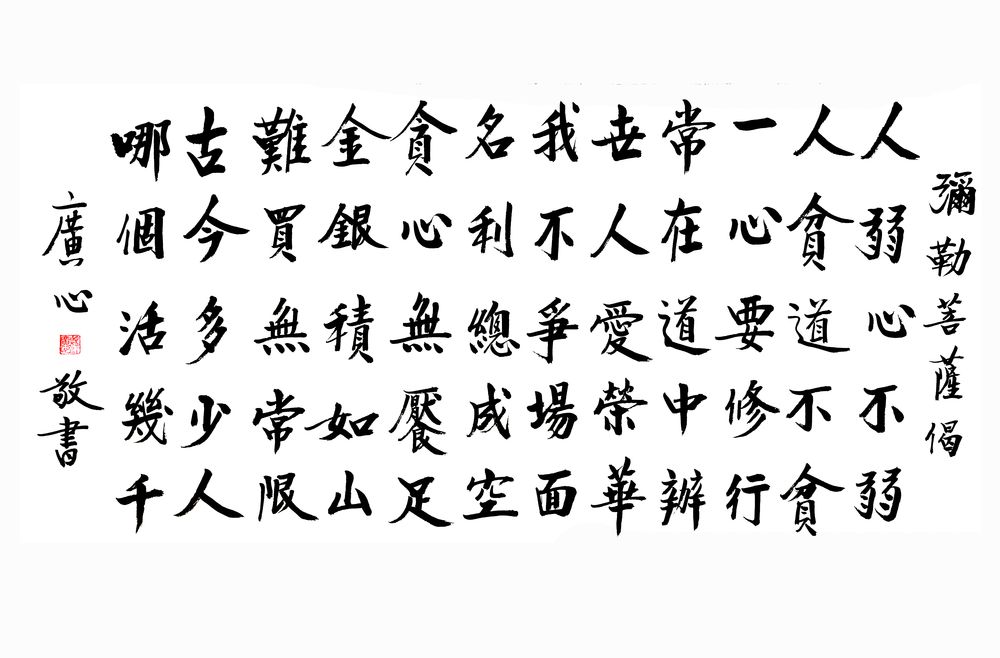 彌勒菩薩偈
人弱心不弱
人貧道不貧
一心要修行
常在道中辦
世人愛榮華
我不爭場面
名利總成空
貪心無饜足
金銀積如山
難買無常限
古今多少人
哪個活幾千
廣心
敬書